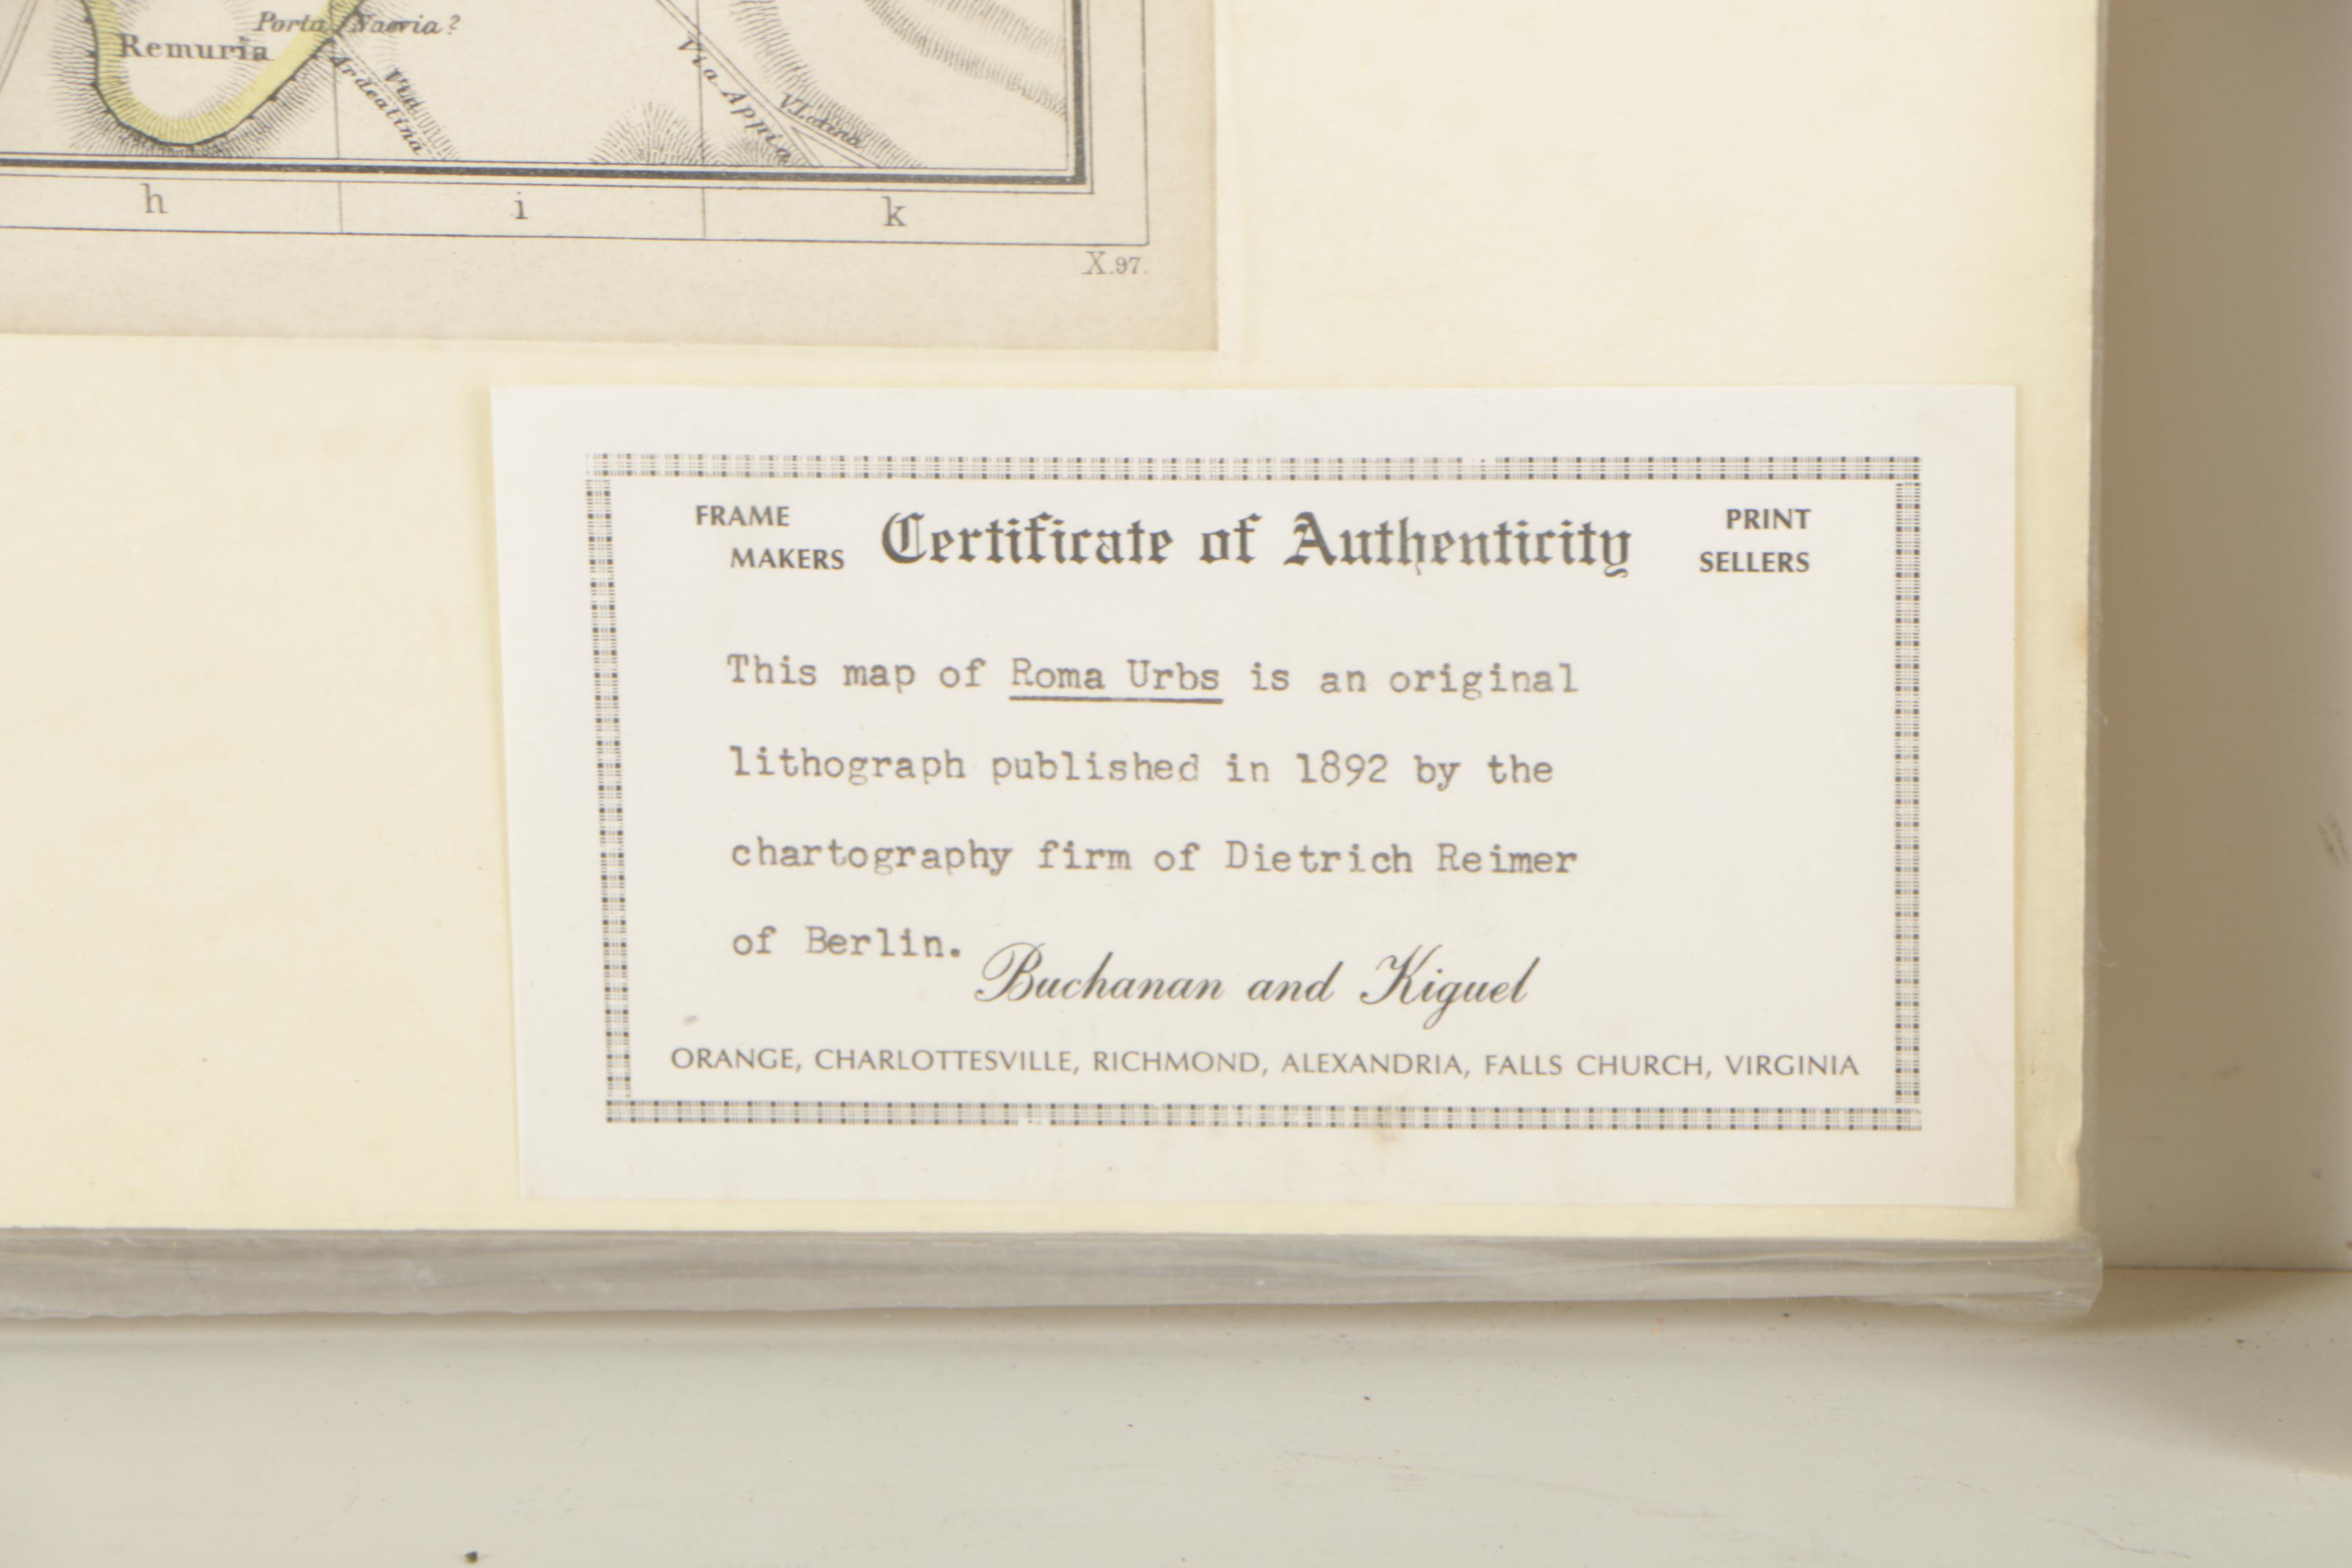 Porta Naevia?
Remuria
Via
Ardeatina
Via Appia
V. Latina
h i k
X.97.
FRAME
MAKERS
Certificate of Authenticity
PRINT
SELLERS
This map of Roma Urbs is an original
lithograph published in 1892 by the
chartography firm of Dietrich Reimer
of Berlin.
Buchanan and Kiguel
ORANGE, CHARLOTTESVILLE, RICHMOND, ALEXANDRIA, FALLS CHURCH, VIRGINIA